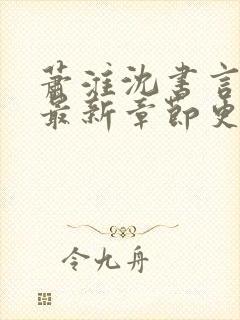 萧淮沈书言
最新章节更
令九舟